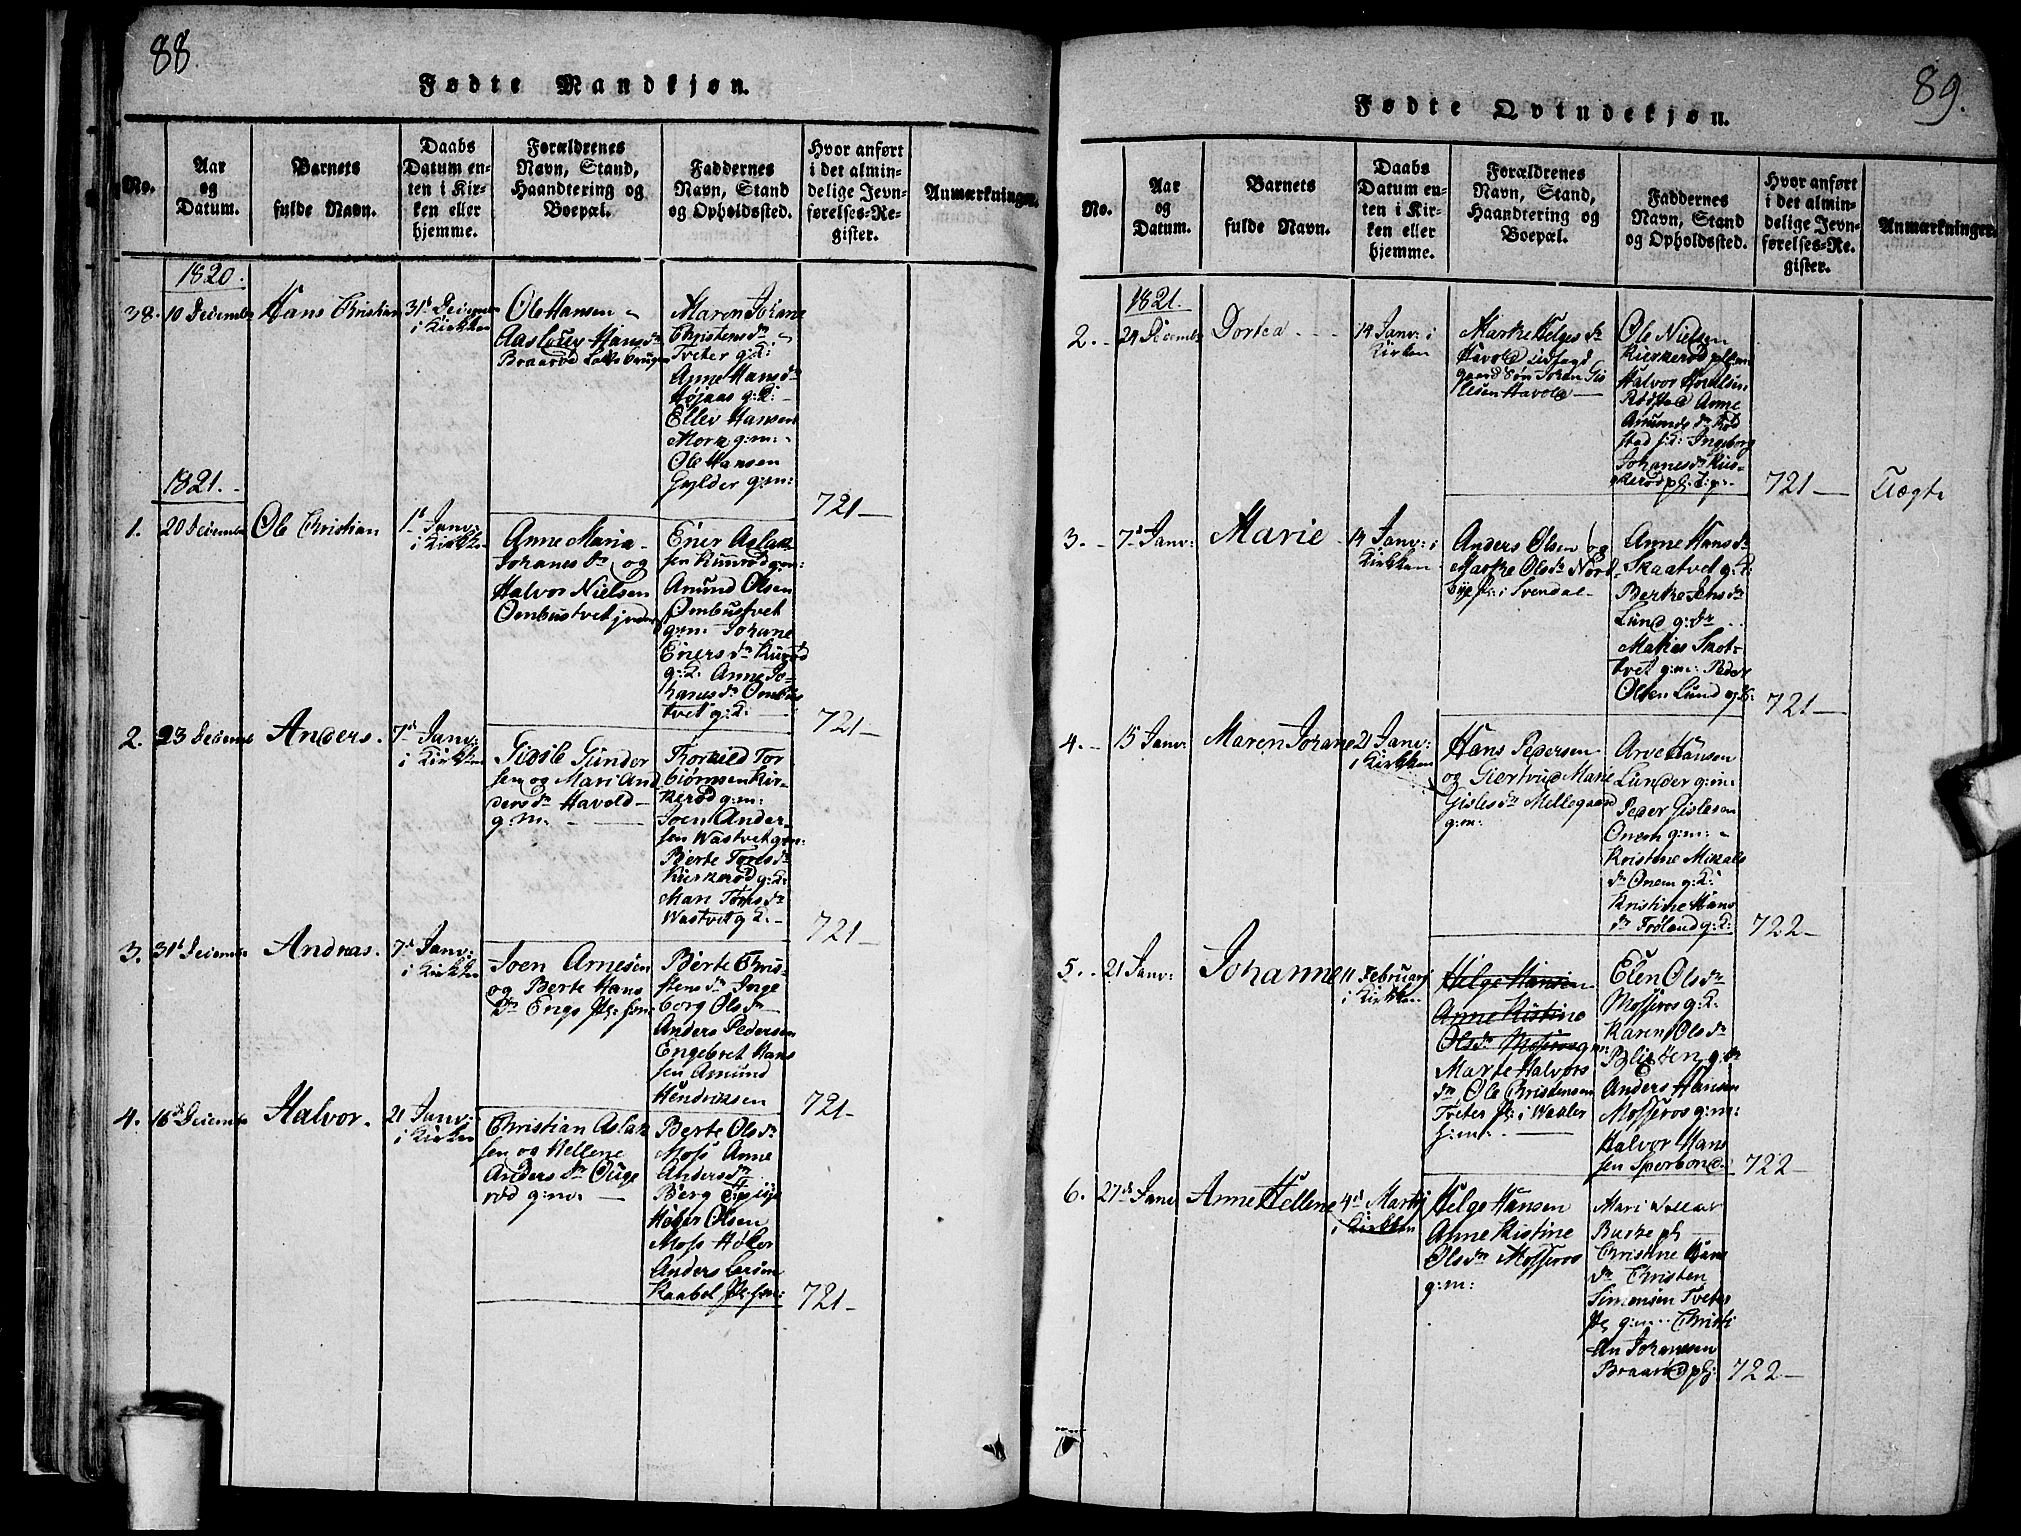 88.
Fødte Mandkjøn.
No.
Aar
og
Datum.
Barnets
fulde Navn.
Daabs
Datum en-
ten i Kir-
ken eller
hjemme.
Forældrenes
Navn, Stand,
Haandtering og
Boepæl.
Faddernes
Navn, Stand
og Opholdssted.
Hvor anført
i det almin-
delige Jevn-
førelses-Re-
gister.
Anmærkninger.
1820.
38. 10 Decembr Hans Christian 31t Decembr
i Kirkken
Ole Hansen
Aasloug Hansdr
Braarød
Maren Johane
Christensdr
Tveter g:k:
Anne Hansdr
Højaas g:k:
Ellev Hansen
Mork g:m:
Ole Hansen
Gylder g:m:
721—
1821.
1. 20 Decembr Ole Christian 1t Janv:
i Kirkken
Anne Maria
Johanesdr og
Halvor Nielsen
Ombustvet
Ener Aslak
sen Kurrød g:m:
Amund Olsen
Ombustvet
g:m: Johane
Enersdr Kurrød
g:k: Anne Jo-
hanesdr Ombus
tvet g:k:
721—
2. 23 Decembr Anders. 7d Janv:
i Kirkken
Gunder
sen og Mari And
dersdr Havold
g:m:
Torkild Tor
biørnsen Kir-
kerød g:m:
Joen Ander-
sen Wastvet g:m:
Berte Toresdr
Kirkerød g:k:
Mari Toresdr
Wastvet g:k.
721—
3. 31t Decembr Andreas. 7d Janv:
i Kirkken
Joen Arnesen
og Berte Hans
dr Enge
Berte Chris-
tensdr Inge
borg Olsdr
Anders Pedersen
Engebret Hans
sen Amund
Hendricksen
721—
4. 16d Decembr Halvor. 21 Janv:
i Kirken
Christian Aslak
sen og Hellene
Andersdr Ouge
rød g:m:
Berte Olsdr
Moss Anne
Andersdr
Berg
Høker Olsen
Moss Høker
Anders
Kaabel
721—
89.
Fødte Qvindekjøn.
No.
Aar
og
Datum.
Barnets
fulde Navn.
Daabs
Datum en-
ten i Kir-
ken eller
hjemme.
Forældrenes
Navn, Stand,
Haandtering og
Boepæl.
Faddernes
Navn, Stand
og Opholdssted.
Hvor anført
i det almin-
delige Jevn-
førelses-Re-
gister.
Anmærkninger.
1821.
2. 24 Decembr Dortea 14 Janv: i
Kirken
Marke Helgesdr
Havold udlagd
gaard Søn Johan Gis
lesen Havold
Ole Nielsen
Kirkerød
Halvor
Rødstad Anne
Amundsdr Rød
stad Ingeborg
Johanesdr Kirs-
kerød
721— Uægte
3. 7d Janv: Marie 14 Janv: i
Kirkken
Anders Olsen og
Marke Olsdr Nord
bye i Svendal
Anne Hansdr
Skaatvet g:k:
Berke Jensdr
Lund g:dr
Maties Skot-
tvet g:m: Peder
Olsen Lund
721—
4. 15 Janv: Maren Johane 21 Janv:
i Kirkken
Hans Pedersen
og Giertrud Marie
Gislesdr Mellegaard
g:m:
Arve Hansen
Lunder g:m:
Peder Gislesen
Onem g:m:
Kristine Mikals
dr Onem g:k:
Kristine Hans
dr Frøland g:k:
722—
5. 21 Janv: Johanne 11 Februarj
i Kirkken
Helge Hansen
Anne Kistine
Olsdr Mosseros g:m:
Marte Halvors
dr Ole Christensen
Tveter i Waaler
Elen Olsdr
Mosseros g:k.
Karen Olsdr
Anders Hansen
Mosseros g:m:
Halvor Hans
sen
722—
6. 27d Janv Anne Hellene 4d Martj
i Kirkken
Helge Hansen
Anne Kistine
Olsdr Mosseros
g:m:
Mari
Christine Hans
dr Christen
Simensen Tveter
g:m: Christi
an Johansen
Braarød
722—